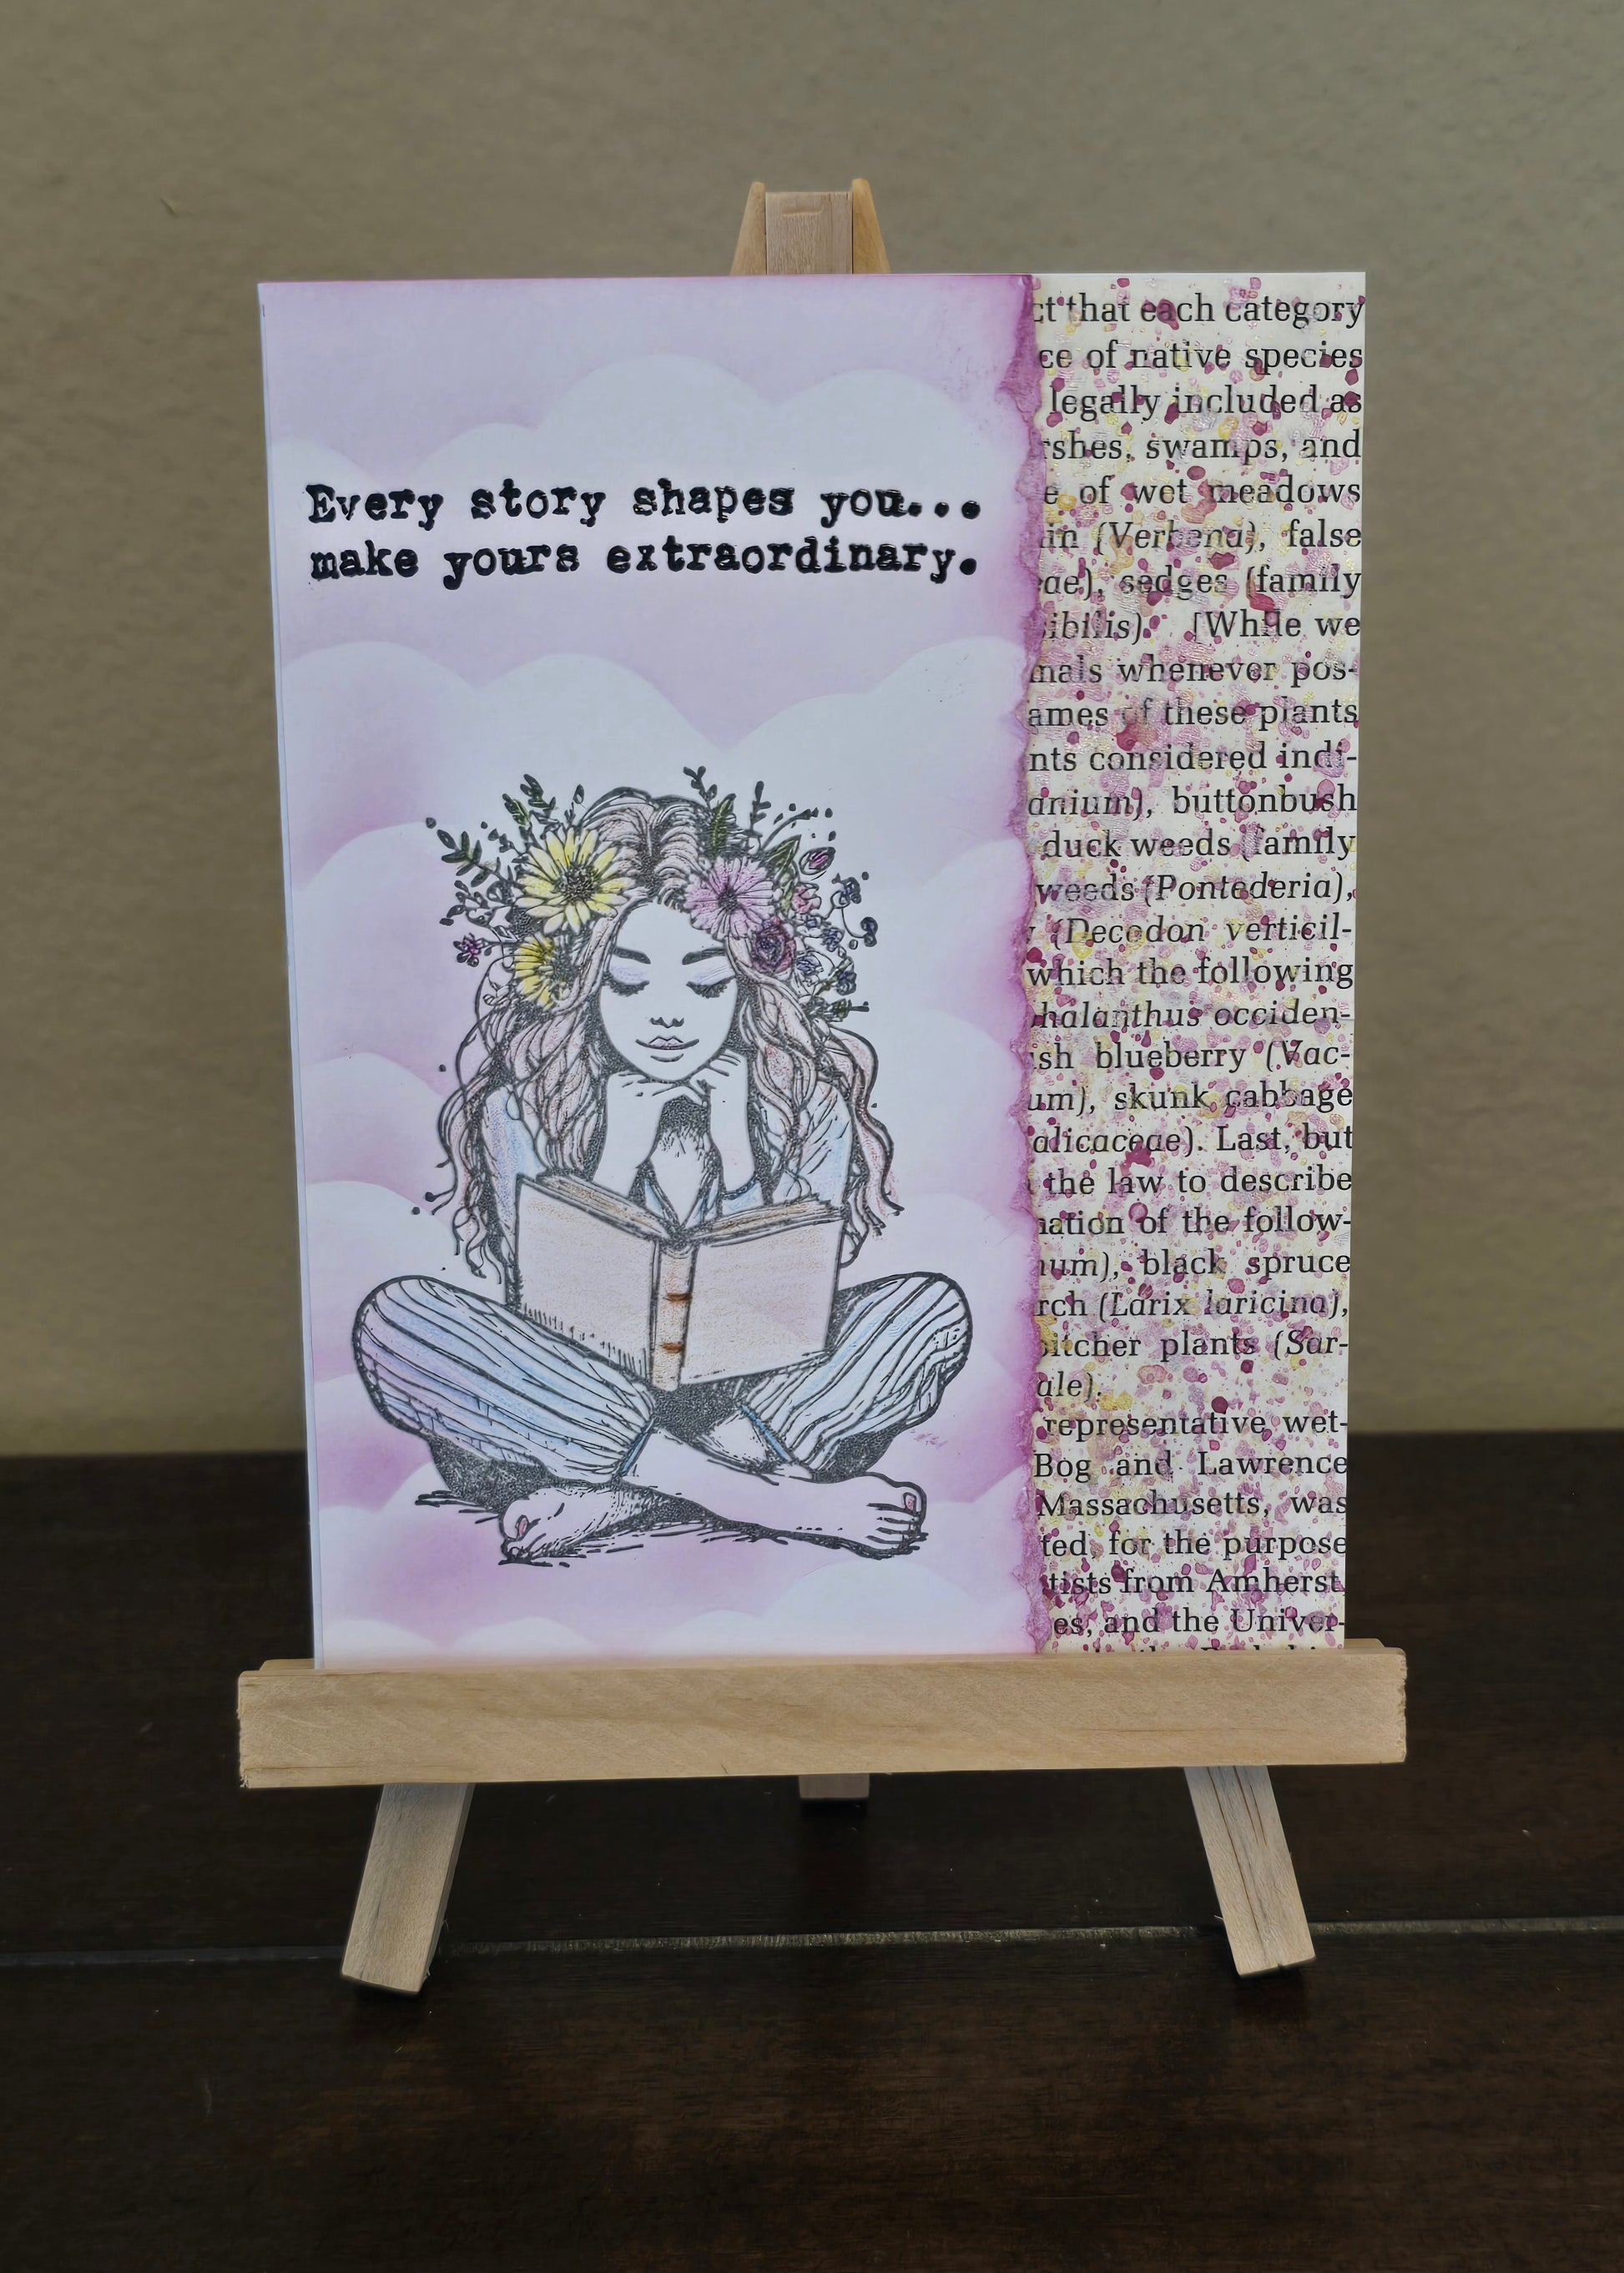 Every story shapes you...
make yours extraordinary.
that each category
of native species
legally included as
swamps, and
of wet meadows
(Verbena), false
sedges (family
[While we
whenever pos-
of these plants
considered indi-
buttonbush
duck weeds (family
weeds (Pontederia),
(Decodon verticil-
which the following
occiden-
blueberry (Vac-
skunk cabbage
Last, but
the law to describe
of the follow-
black spruce
(Larix laricina),
plants (Sar-
representative wet-
Bog and Lawrence
Massachusetts, was
for the purpose
from Amherst
and the Univer-